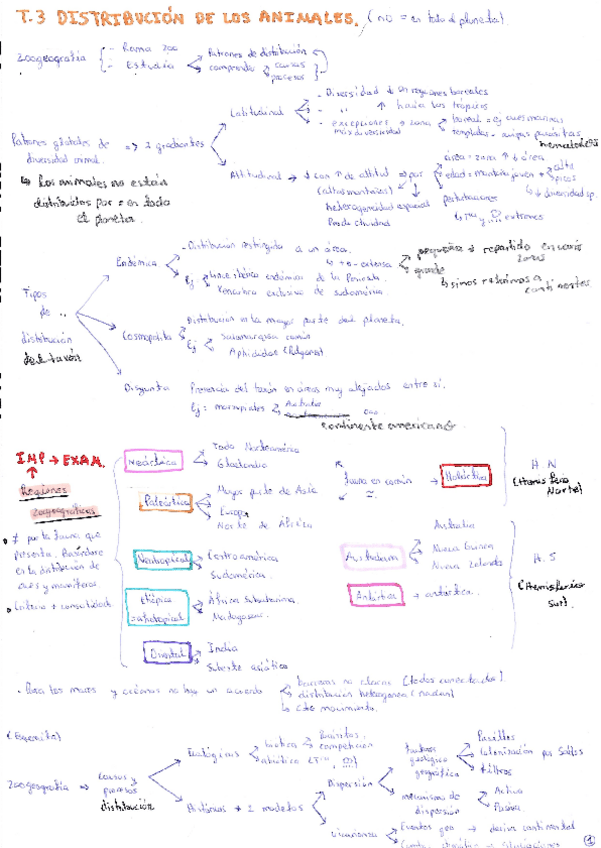 T.3 DISTRIBUCIÓN DE LOS ANIMALES. (no = en todo el planeta).
Zoogeografía - Rama zoo
- Estudia Patrones de distribución
comprende causas
procesos
Patrones globales de diversidad animal. => 2 gradientes
Latitudinal - Diversidad ↓ en regiones boreales
- " ↑ hacia los trópicos
- excepciones → zona boreal = ej aves marinas
más diversidad templadas - avispas parásitas
nematodos
↳ Los animales no están distribuidos por = en todo el planeta.
Altitudinal → ↓ con ↑ de altitud => por área = zona ↑ ↓ área
(altas montañas) edad = montaña joven
heterogeneidad espacial perturbaciones
Productividad ↳ Tª y extremas
↓ diversidad sp.
Tipos de distribución del taxón
Endémica - Distribución restringida a un área.
↳ +o- extensa pequeña → repartido en varias zonas
grande
Ej Lince ibérico endémico de la Península.
exclusivo de sudamérica.
Cosmopolita Distribución en la mayor parte del planeta.
Ej Salamanquesa común
Aphididos (Pulgones)
Disyunta Presencia del taxón en áreas muy alejadas entre sí.
Ej: marsupiales Australia
continente americano
IMP → EXAM.
Regiones zoogeográficas
Neártica Todo Norteamérica
Groenlandia
Paleártica Mayor parte de Asia
Europa
Norte de África
fauna en común → Holártica
H N
(Hemisferio Norte)
≠ por la fauna que presenta. Basándose en la distribución de aves y mamíferos
Criterio + consolidado
Neotropical Centroamérica
Sudamérica.
Etiópica = afrotropical África Subsahariana
Madagascar.
Oriental India
Sureste asiático
Australiana Australia
Nueva Guinea
Nueva Zelanda
Antártica → antártica.
H. S
(Hemisferio Sur).
- Para los mares y océanos no hay un acuerdo barreras no claras (todos conectados).
distribución heterogénea (nadan)
movimiento.
(Esquemita)
Zoogeografía → causas y procesos distribución
Ecológicas biótica
competición
abiótica (Tª, )
Históricas → 2 modelos
Dispersión Pasillos
geológico Colonización por Saltos
geográfica Filtros
mecanismo de dispersión Activa
Pasiva
Vicarianza Eventos geo → deriva continental
①